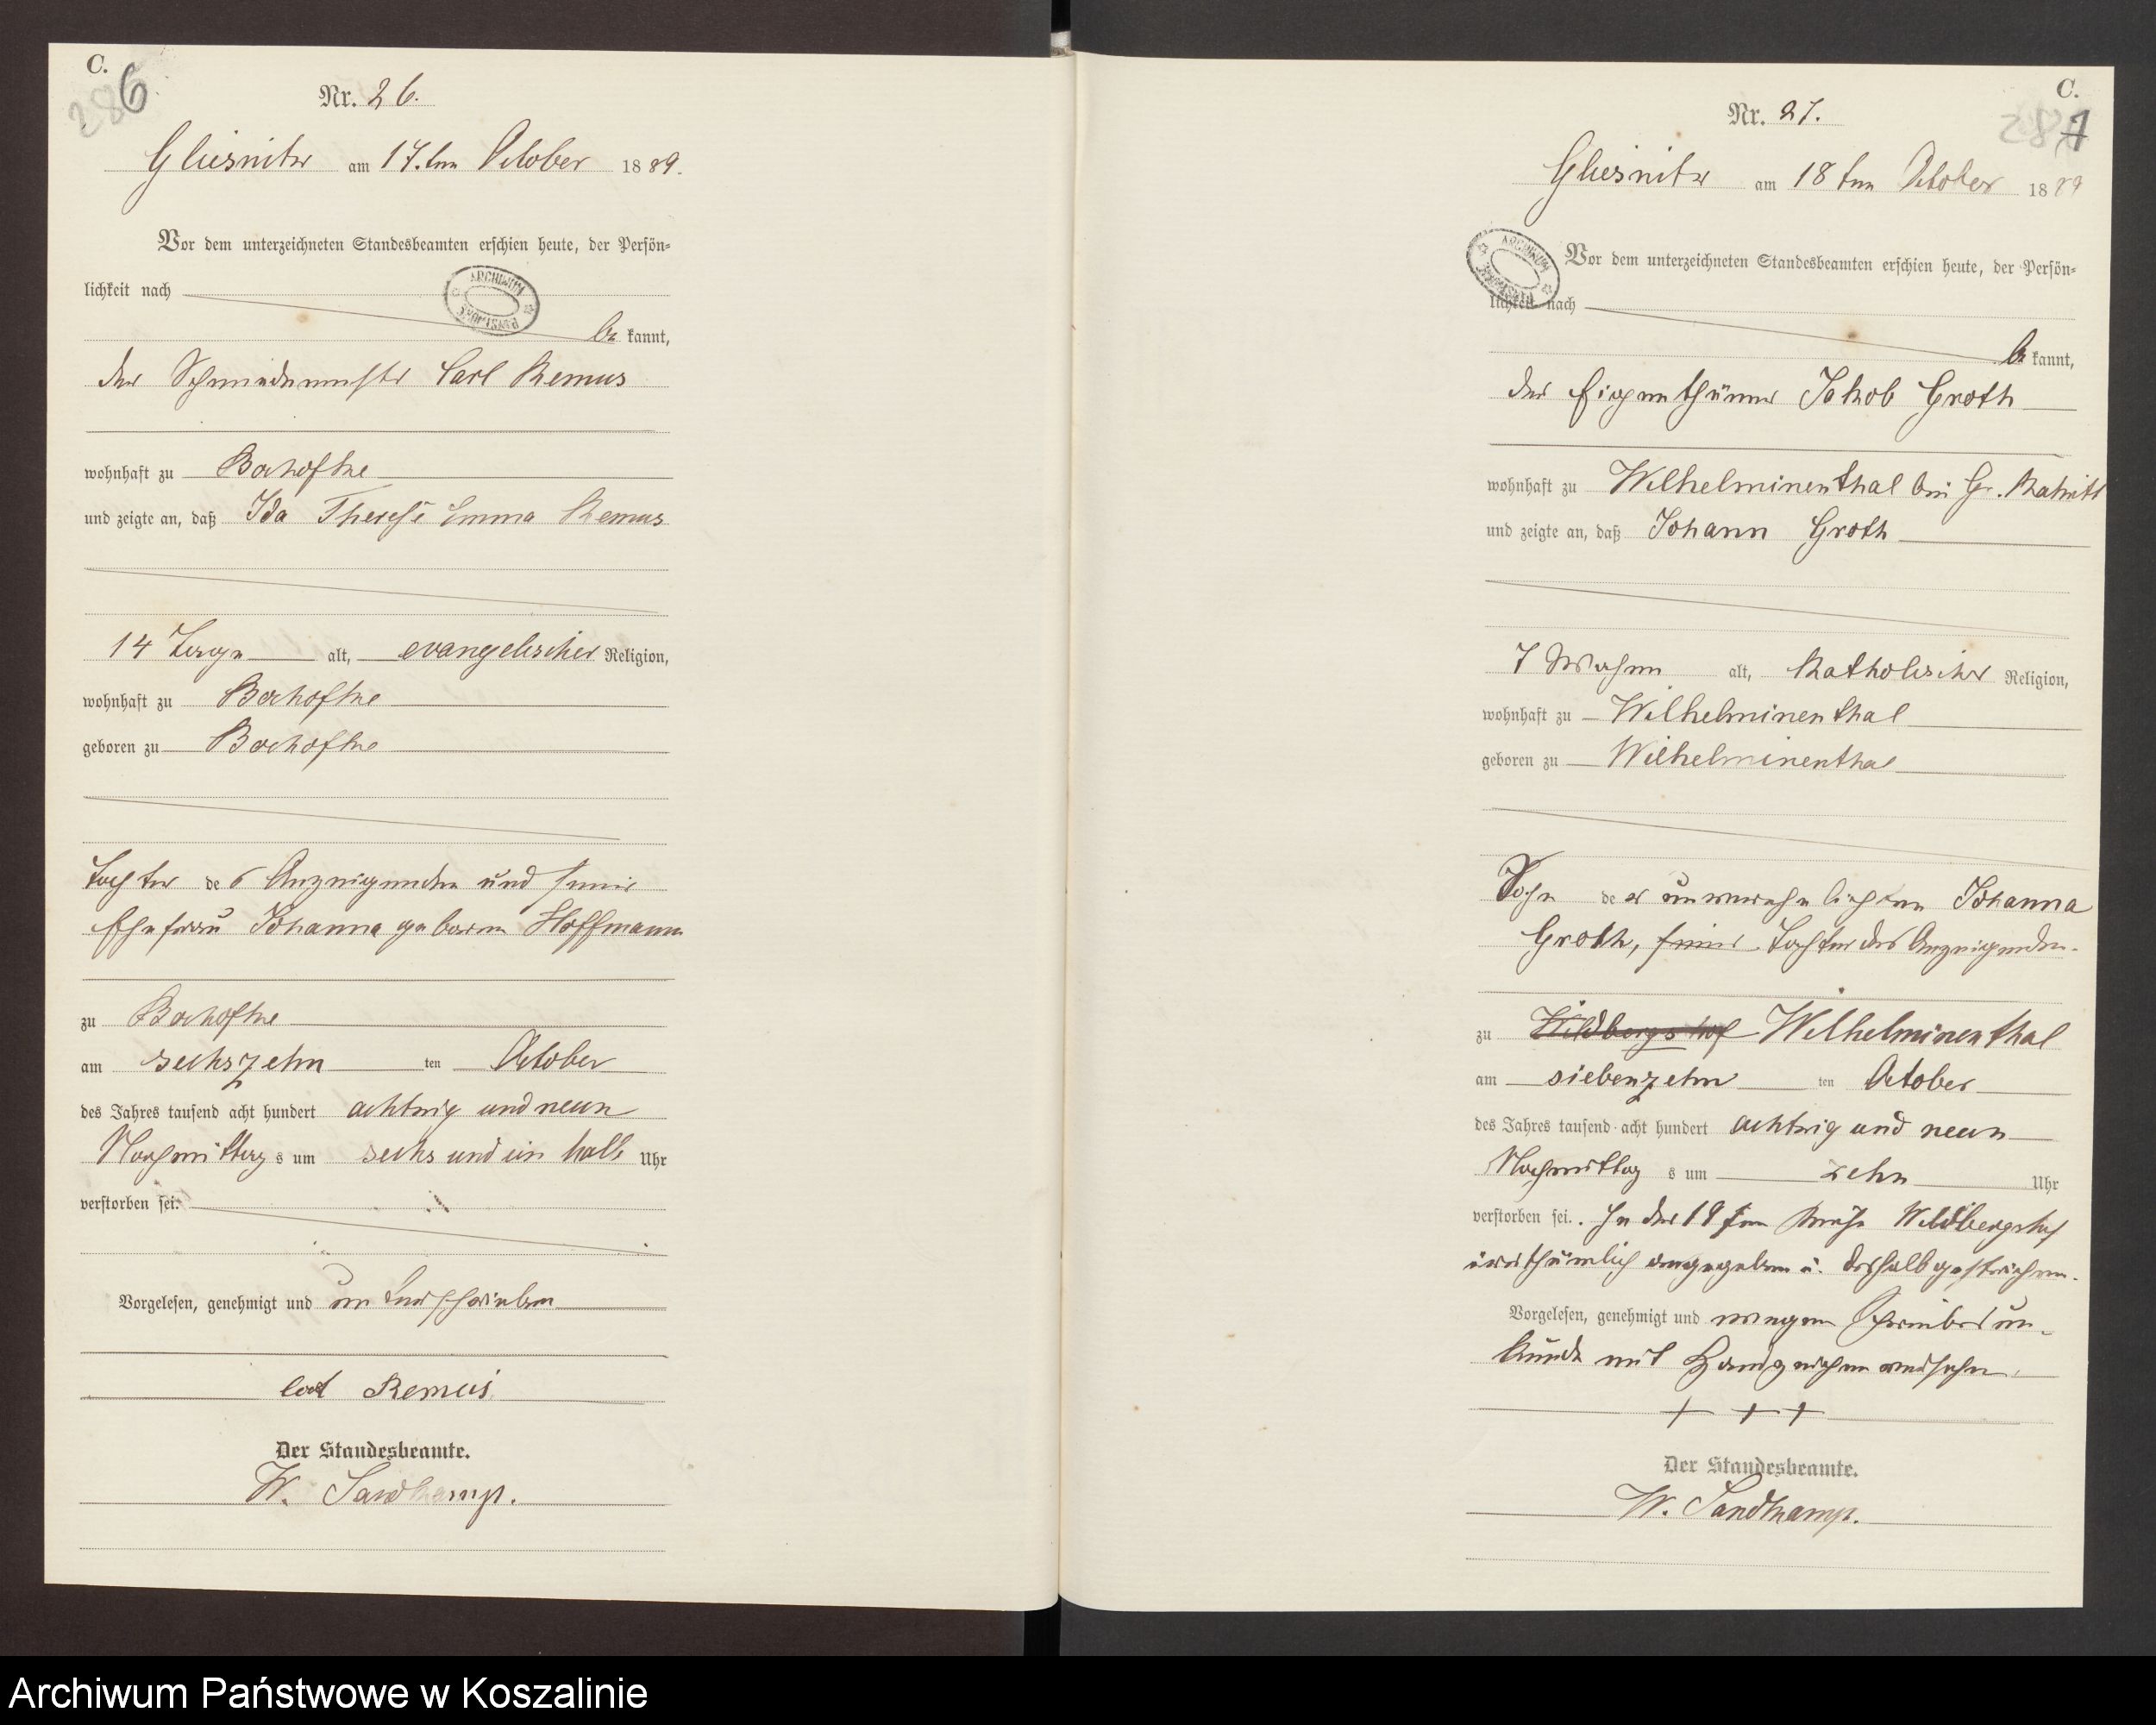 C.
286
Nr. 26.
Gliesnitz am 17.ten October 1889.
Vor dem unterzeichneten Standesbeamten erschien heute, der Persön=
lichkeit nach
ARCHIWUM PAŃSTWOWE
be kannt,
der Schmiedemeister Carl Remus
wohnhaft zu
und zeigte an, daß Ida Therese Emma Remus
14 Tage alt, evangelischer Religion,
wohnhaft zu
geboren zu
Tochter des Anzeigenden und seiner
Ehefrau Johanna geboren Hoffmann
zu
am sechszehn ten October
des Jahres tausend acht hundert achtzig und neun
Nachmittag s um sechs und ein halb Uhr
verstorben sei.
Vorgelesen, genehmigt und unterschrieben
Remus
Der Standesbeamte.
W. Sandkamp.
C.
287
Nr. 27.
Gliesnitz am 18ten October 1889
Vor dem unterzeichneten Standesbeamten erschien heute, der Persön=
lichkeit nach
ARCHIWUM PAŃSTWOWE
be kannt,
der Eigenthümer Jakob Groth
wohnhaft zu Wilhelminenthal bei Gr.
und zeigte an, daß Johann Groth
7 Wochen alt, Katholischer Religion,
wohnhaft zu Wilhelminenthal
geboren zu Wilhelminenthal
Sohn der unverehelichten Johanna
Groth, seiner Tochter des Anzeigenden.
zu Wildbergshof Wilhelminenthal
am siebenzehn ten October
des Jahres tausend acht hundert achtzig und neun
Nachmittag s um zehn Uhr
verstorben sei. In der 19ten Reihe Wildbergshof
irrthümlich angegeben u. deshalb gestrichen.
Vorgelesen, genehmigt und wegen Schreibesun-
kunde mit Handzeichen versehen.
+ + +
Der Standesbeamte.
W. Sandkamp.
Archiwum Państwowe w Koszalinie